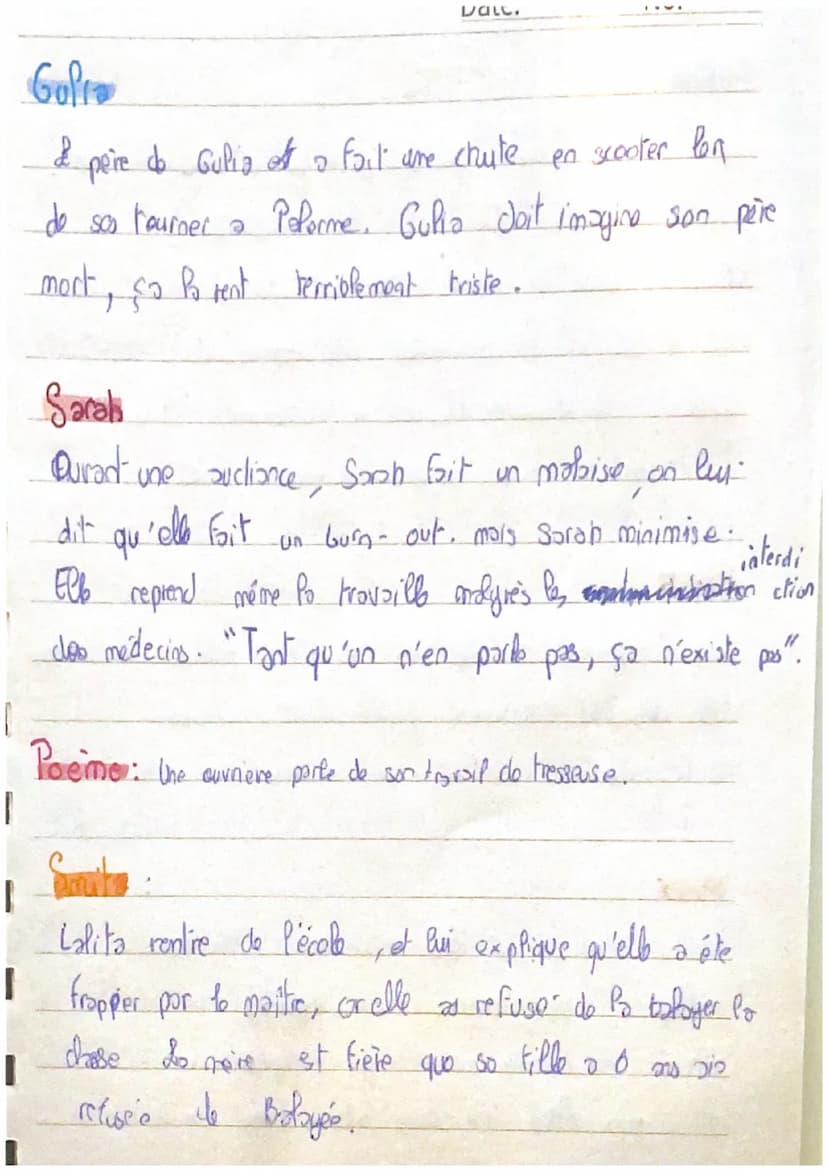 Date.
Gulia
Le père de Gulia et a fait une chute en scooter lon
de ses tourner a Palerme. Gulia doit imagine son père
mort, ça la rent terriblement triste.
Sarah
Durant une audiance, Sarah fait un malaise, on lui
dit qu'elle fait un burn-out. mais Sarah minimise.
interdi
Elle reprend même la travaille malgrès les ction
des médecins. "Tant qu'on n'en parle pas, ça n'existe pas".
Poème: Une ouvrière parle de son travail de tresseuse.
Smita:
Lalita rentre de l'école, et lui explique qu'elle a été
frapper par le maître, car elle as refuser de la balayer la
classe La mère est fière que sa fille a 6 ans aie
refusée de Balayée.